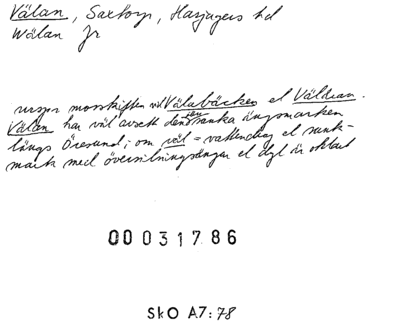 Välan, Saxtorp, Harjagers hd
Wälan Jr
urspr mosskiften vid Välabäcken el Väldran.
Välan har väl avsett den sanka ängsmarken
längs Öresund; om väl = vattendrag el sank-
mark med översilningsängar el dyl är oklart
00031786
SkO A7:78